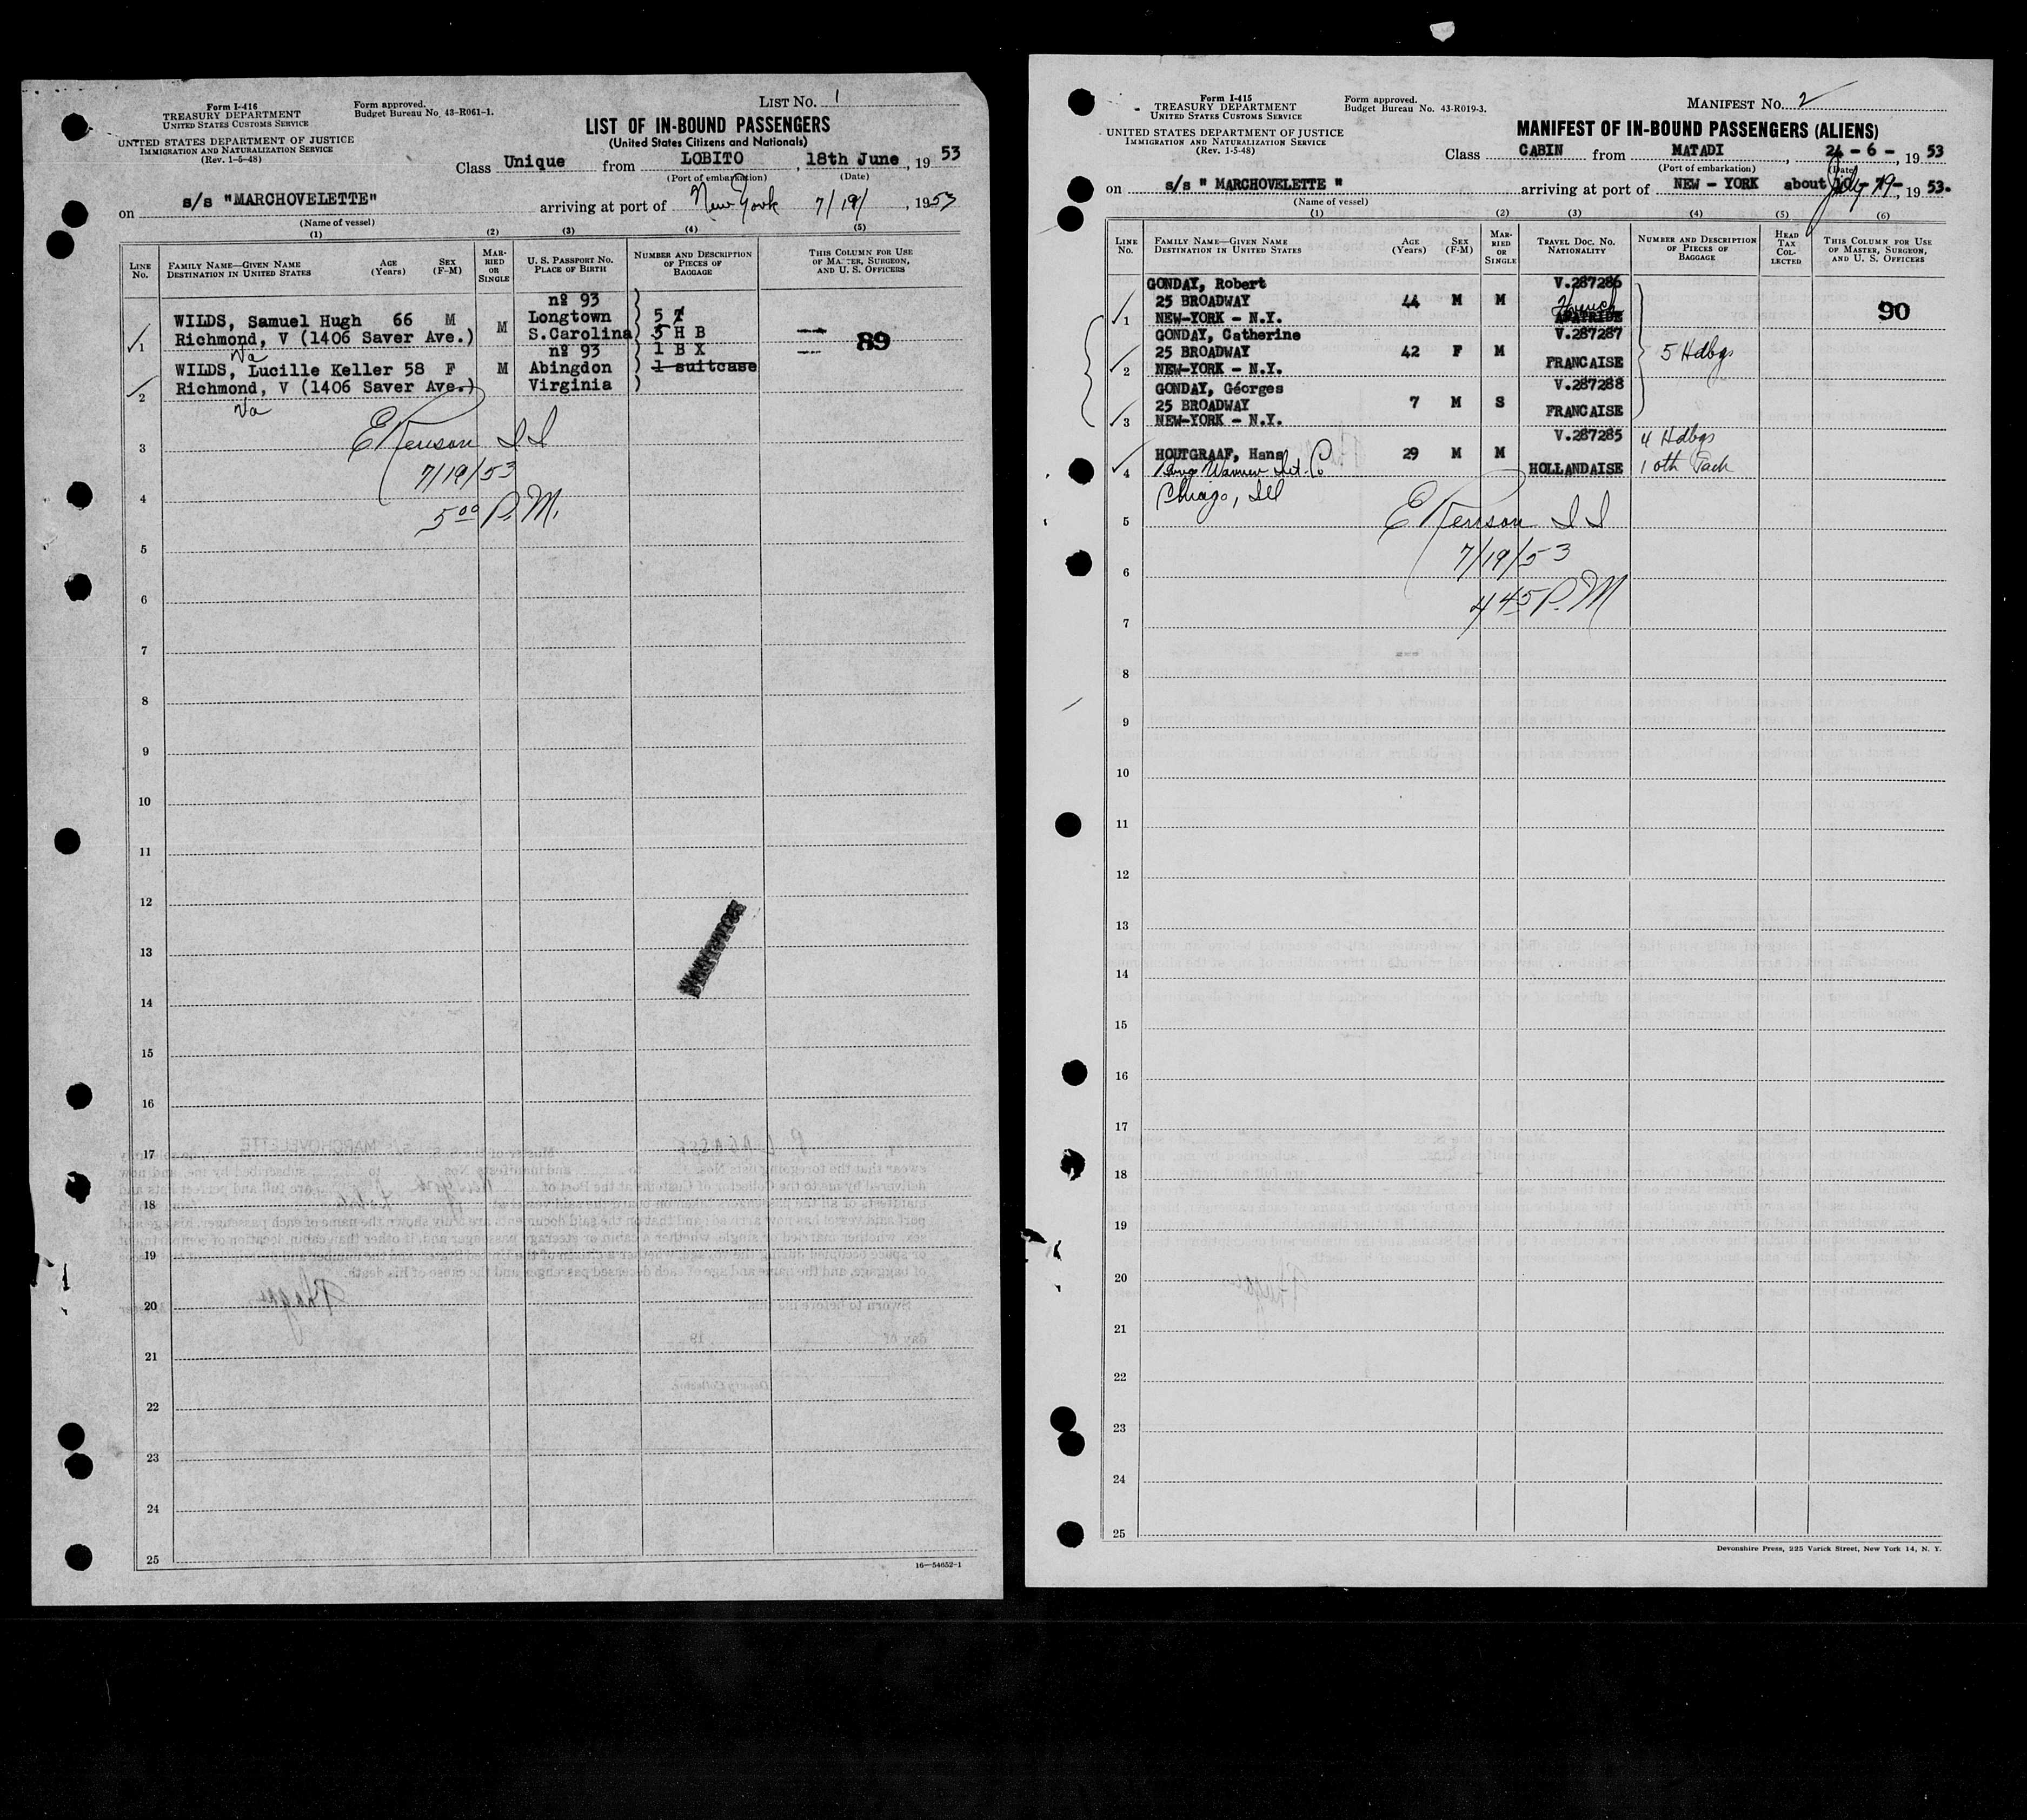 Form I-416
TREASURY DEPARTMENT
UNITED STATES CUSTOMS SERVICE
UNITED STATES DEPARTMENT OF JUSTICE
IMMIGRATION AND NATURALIZATION SERVICE
(Rev. 1-5-48)
Form approved.
Budget Bureau No. 43-R061-1.
LIST NO. 1
LIST OF IN-BOUND PASSENGERS
(United States Citizens and Nationals)
Class Unique from LOBITO, 18th June, 1953
(Port of embarkation) (Date)
on s/s "MARCHOVELETTE" arriving at port of New York 7/19/, 1953
(Name of vessel)
(1) (2) (3) (4) (5)
LINE No. FAMILY NAME—GIVEN NAME DESTINATION IN UNITED STATES AGE (Years) SEX (F-M) MARRIED OR SINGLE U. S. PASSPORT NO. PLACE OF BIRTH NUMBER AND DESCRIPTION OF PIECES OF BAGGAGE THIS COLUMN FOR USE OF MASTER, SURGEON, AND U. S. OFFICERS
nº 93
WILDS, Samuel Hugh 66 M M Longtown 5
1 Richmond, V (1406 Saver Ave.) S.Carolina 5 H B 89
Va nº 93 1 B X
WILDS, Lucille Keller 58 F M Abingdon 1 suitcase
2 Richmond, V (1406 Saver Ave.) Virginia
Va
3
7/19/53
4
5 00 P.M.
5
6
7
8
9
10
11
12
13
14
15
16
17
18
19
20
21
22
23
24
25
16—54652-1
Form I-415
TREASURY DEPARTMENT
UNITED STATES CUSTOMS SERVICE
UNITED STATES DEPARTMENT OF JUSTICE
IMMIGRATION AND NATURALIZATION SERVICE
(Rev. 1-5-48)
Form approved.
Budget Bureau No. 43-R019-3.
MANIFEST No. 2
MANIFEST OF IN-BOUND PASSENGERS (ALIENS)
Class CABIN from MATADI, 24 - 6 -, 1953
(Port of embarkation) (Date)
on s/s " MARCHOVELETTE " arriving at port of NEW - YORK about July 19-, 1953.
(Name of vessel)
(1) (2) (3) (4) (5) (6)
LINE No. FAMILY NAME—GIVEN NAME DESTINATION IN UNITED STATES AGE (Years) SEX (F-M) MARRIED OR SINGLE TRAVEL DOC. NO. NATIONALITY NUMBER AND DESCRIPTION OF PIECES OF BAGGAGE HEAD TAX COLLECTED THIS COLUMN FOR USE OF MASTER, SURGEON, AND U. S. OFFICERS
GONDAY, Robert V.287286
25 BROADWAY 44 M M French 90
1 NEW-YORK - N.Y. APATRIDE
GONDAY, Catherine V.287287
25 BROADWAY 42 F M 5 Hdbgs
2 NEW-YORK - N.Y. FRANCAISE
GONDAY, Géorges V.287288
25 BROADWAY 7 M S
3 NEW-YORK - N.Y. FRANCAISE
V.287285 4 Hdbgs
HOUTGRAAF, Hans 29 M M
4 Borg Warner Int. Co HOLLANDAISE 1 oth Pack
Chicago, Ill
5
7/19/53
6
4 45 P.M
7
8
9
10
11
12
13
14
15
16
17
18
19
20
21
22
23
24
25
Devonshire Press, 225 Varick Street, New York 14, N. Y.